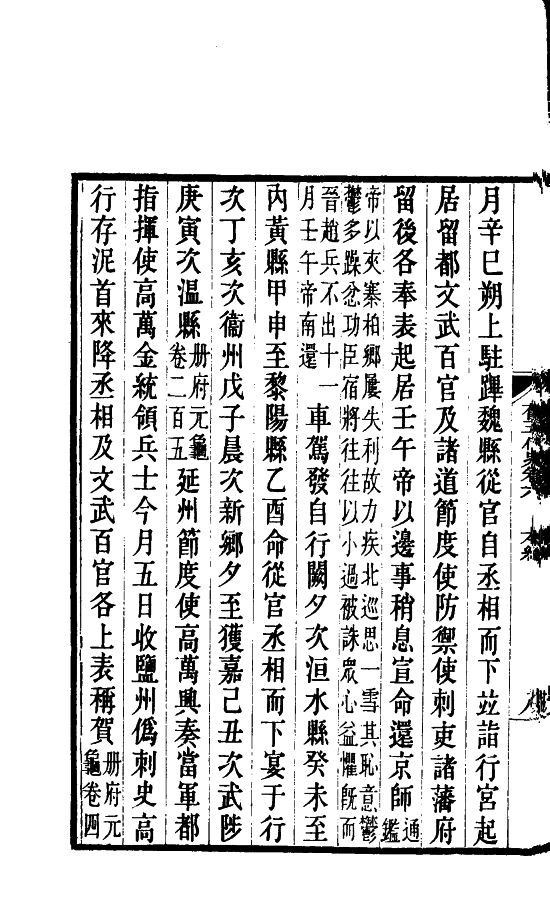 月辛巳朔上駐蹕魏縣從官自丞相而下竝詣行宮起
居留都文武百官及諸道節度使防禦使刺史諸藩府
留後各奉表起居壬午帝以邊事稍息宣命還京師通鑑
帝以夾寨柏鄉屢失利故力疾北巡思一雪其恥意鬱
鬱多躁忿功臣宿將往往以小過被誅眾心益懼旣而
晉趙兵不出十一月壬午帝南還車駕發自行闕夕次洹水縣癸未至
內黃縣甲申至黎陽縣乙酉命從官丞相而下宴于行
次丁亥次衞州戊子晨次新鄉夕至獲嘉己丑次武陟
庚寅次溫縣册府元龜卷二百五延州節度使高萬興奏當軍都
指揮使高萬金統領兵士今月五日收鹽州僞刺史高
行存泥首來降丞相及文武百官各上表稱賀册府元龜卷四